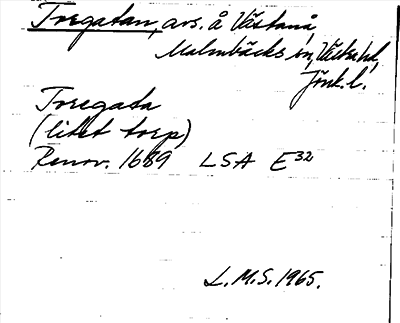 Tregatan, avs. å Västanå,
Malmbäcks sn, Västra hd,
Jönk. l.
Tregata
(litet torp)
Renov. 1689 LSA E32
L.M.S. 1965.